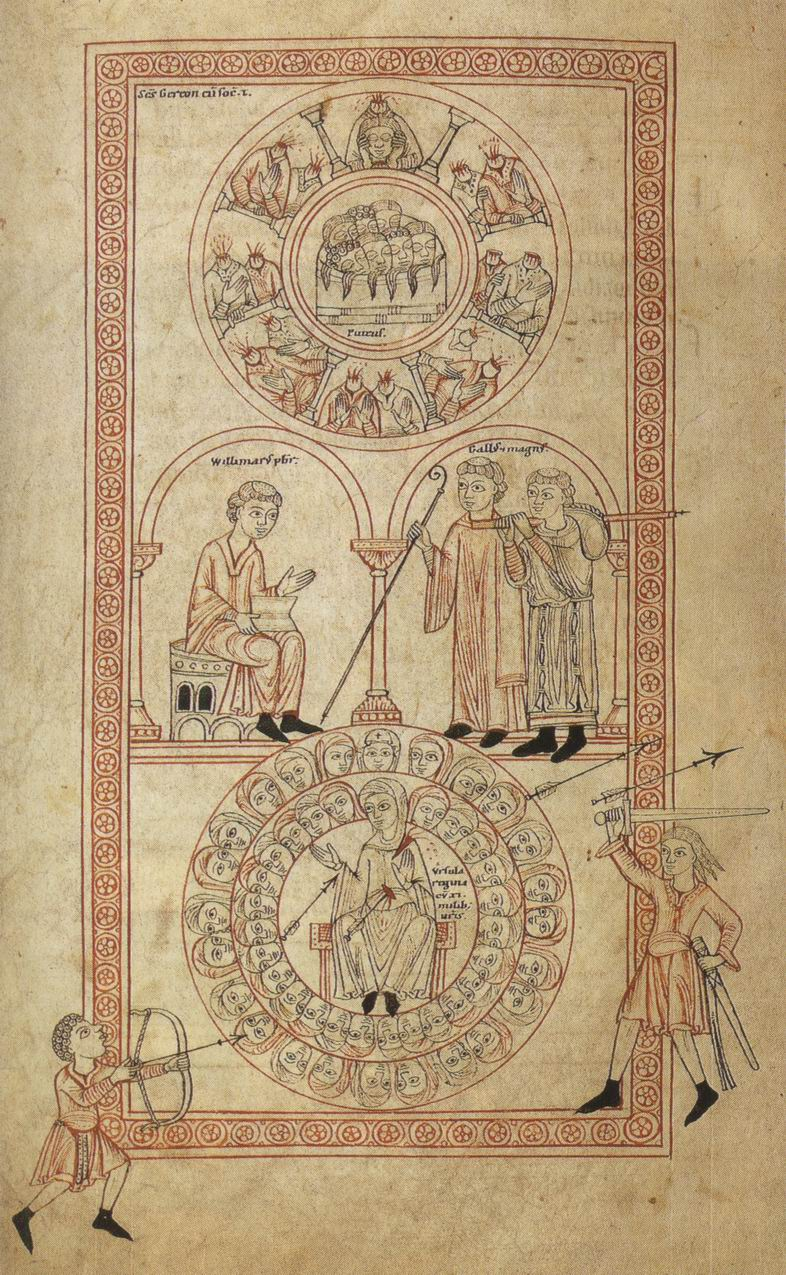 Scs Gereon cū soc. ı.
Puteus.
Willimarꝰ pbr.
Gallꝰ ⁊ magnꝰ.
Vrsula
regina
cū xi.
milib;
uirḡ.